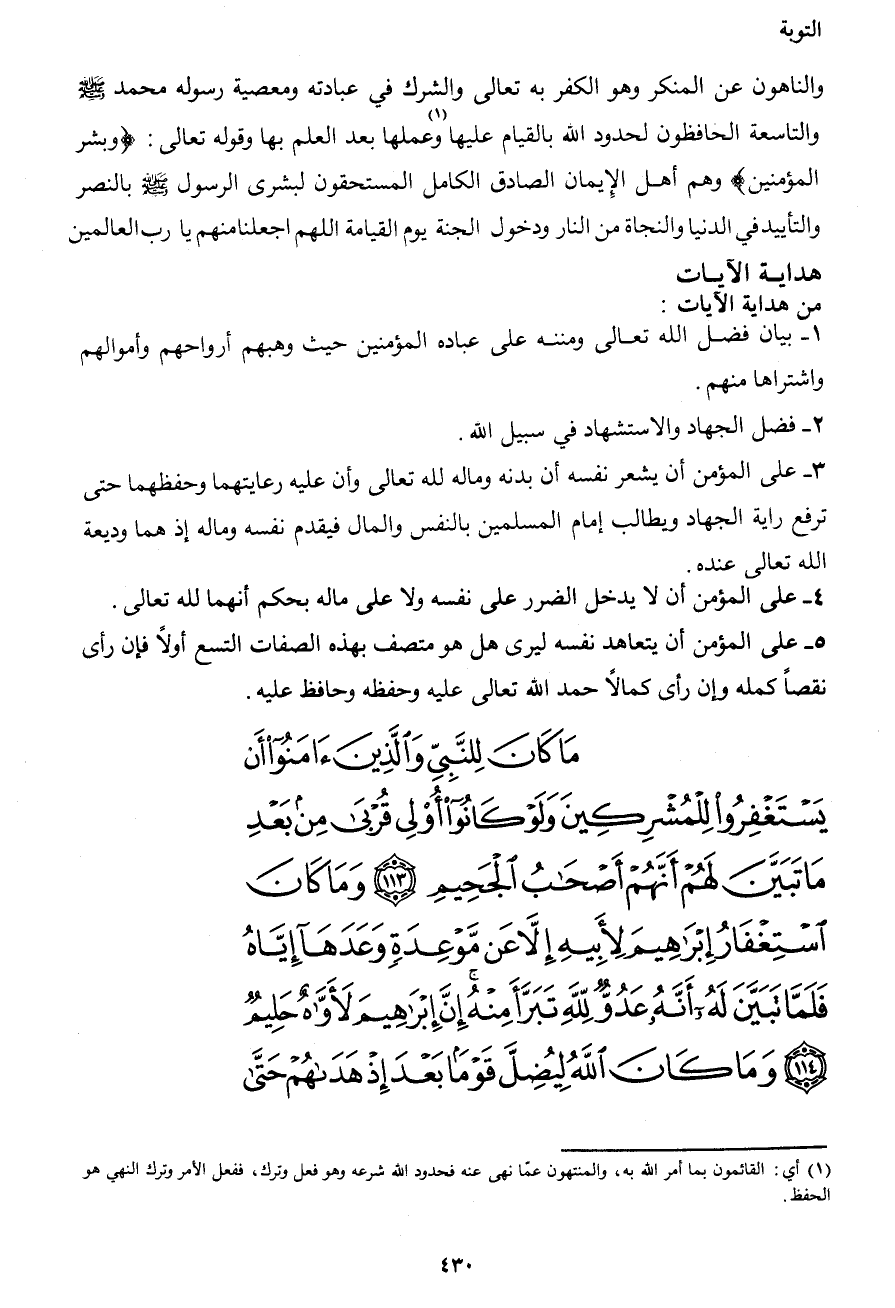 التوبة
والناهون عن المنكر وهو الكفر به تعالى والشرك في عبادته ومعصية رسوله محمد ﷺ
والتاسعة الحافظون لحدود الله بالقيام عليها وعملها(١) بعد العلم بها وقوله تعالى : ﴿وبشر
المؤمنين﴾ وهم أهل الإيمان الصادق الكامل المستحقون لبشرى الرسول ﷺ بالنصر
والتأييد في الدنيا والنجاة من النار ودخول الجنة يوم القيامة اللهم اجعلنا منهم يا رب العالمين
هداية الآيات
من هداية الآيات :
١- بيان فضل الله تعالى ومننه على عباده المؤمنين حيث وهبهم أرواحهم وأموالهم
واشتراها منهم .
٢- فضل الجهاد والاستشهاد في سبيل الله .
٣- على المؤمن أن يشعر نفسه أن بدنه وماله لله تعالى وأن عليه رعايتهما وحفظهما حتى
ترفع راية الجهاد ويطالب إمام المسلمين بالنفس والمال فيقدم نفسه وماله إذ هما وديعة
الله تعالى عنده .
٤- على المؤمن أن لا يدخل الضرر على نفسه ولا على ماله بحكم أنهما لله تعالى .
٥- على المؤمن أن يتعاهد نفسه ليرى هل هو متصف بهذه الصفات التسع أولاً فإن رأى
نقصاً كمله وإن رأى كمالاً حمد الله تعالى عليه وحفظه وحافظ عليه .
مَاكَانَ لِلنَّبِيِّ وَٱلَّذِينَ ءَامَنُوٓا۟ أَن
يَسْتَغْفِرُوا۟ لِلْمُشْرِكِينَ وَلَوْ كَانُوٓا۟ أُو۟لِى قُرْبَىٰ مِنۢ بَعْدِ
مَا تَبَيَّنَ لَهُمْ أَنَّهُمْ أَصْحَٰبُ ٱلْجَحِيمِ ﴿١١٣﴾ وَمَا كَانَ
ٱسْتِغْفَارُ إِبْرَٰهِيمَ لِأَبِيهِ إِلَّا عَن مَّوْعِدَةٍ وَعَدَهَآ إِيَّاهُ
فَلَمَّا تَبَيَّنَ لَهُۥٓ أَنَّهُۥ عَدُوٌّ لِّلَّهِ تَبَرَّأَ مِنْهُ ۚ إِنَّ إِبْرَٰهِيمَ لَأَوَّٰهٌ حَلِيمٌ
﴿١١٤﴾ وَمَا كَانَ ٱللَّهُ لِيُضِلَّ قَوْمًۢا بَعْدَ إِذْ هَدَىٰهُمْ حَتَّىٰ
(١) أي : القائمون بما أمر الله به، والمنتهون عمّا نهى عنه فحدود الله شرعه وهو فعل وترك، ففعل الأمر وترك النهي هو
الحفظ .
٤٣٠